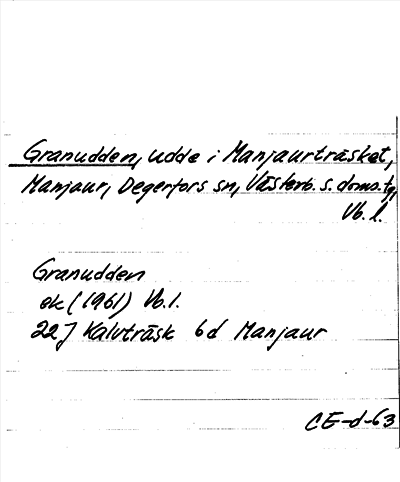 Granudden, udde i Manjaurträsket,
Manjaur, Degerfors sn, Västerb. s. doms.tg,
Vb. l.
Granudden
ek (1961) Vb. l.
22 J Kalvträsk 6d Manjaur
CE-d-63